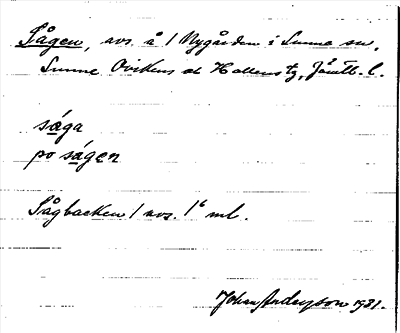 Sågen, avs. å 1 Nygården i Sunne sn,
Sunne Ovikens o Hallens tg, Jämtl. l.
såga
po ságen
Sågbacken 1 avs. 1⁶ ml.
Johan Anderzson 1931.